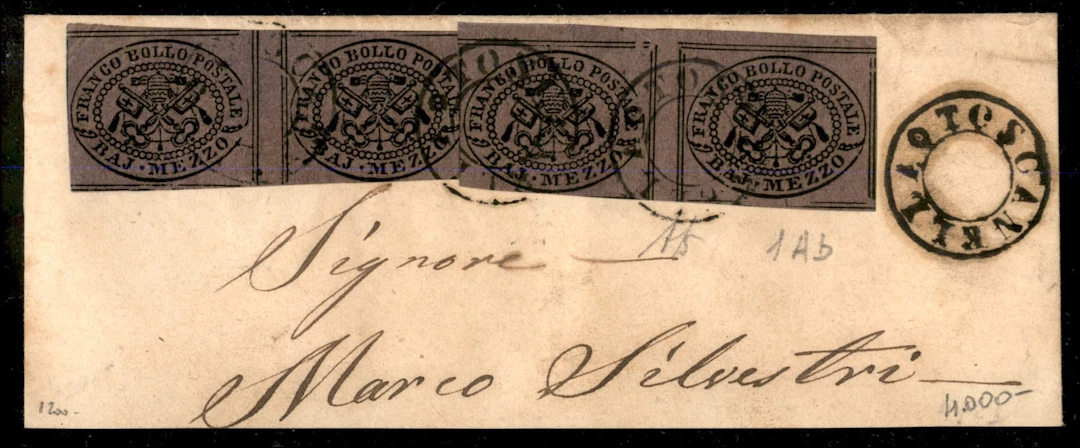 FRANCO BOLLO POSTALE
BAJ. MEZZO
FRANCO BOLLO POSTALE
BAJ. MEZZO
FRANCO BOLLO POSTALE
BAJ. MEZZO
FRANCO BOLLO POSTALE
BAJ. MEZZO
TOSCANELLA
1Ab
Signore
Marco Silvestri
1200-
4.000-